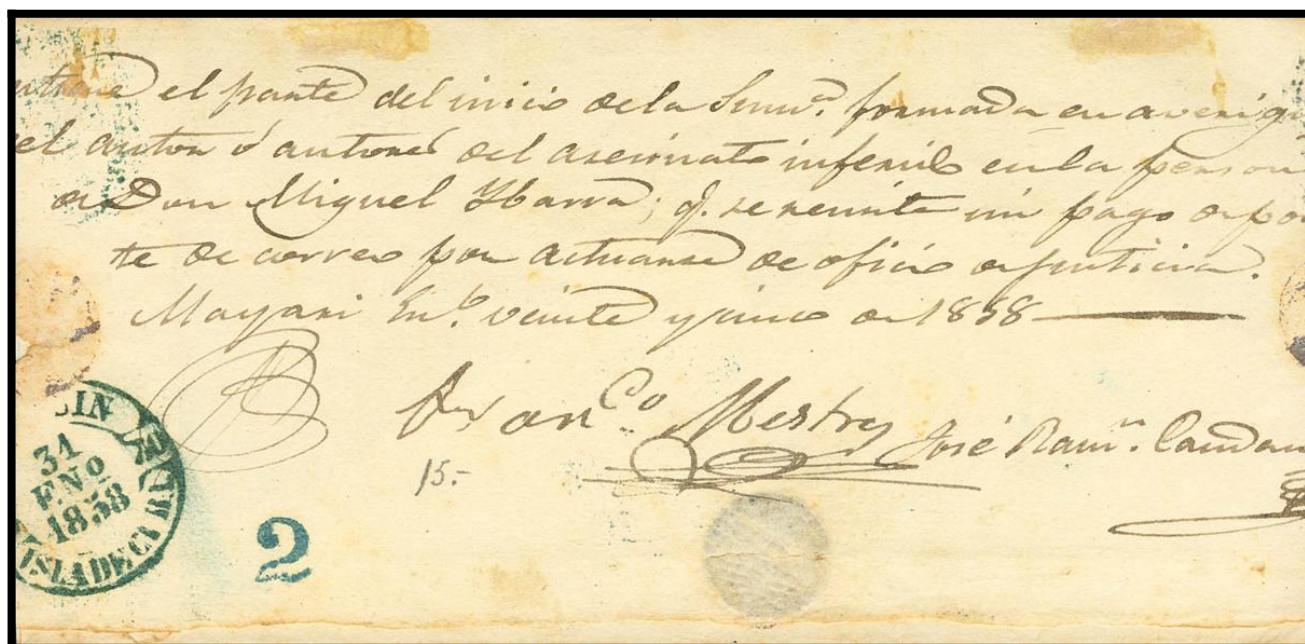 el parte del inicio de la Sum.ª formada en averigu
el autor ó autores del asesinato inferido en la person
de Don Miguel Ybarra; q. se remite sin pago de por
te de correo por actuarse de oficio de justicia.
Mayari En.º veinte y cinco de 1858
Fran.co Mestre José Ram.n
15.-
2
31
ENO
1858
ISLA DE CUBA